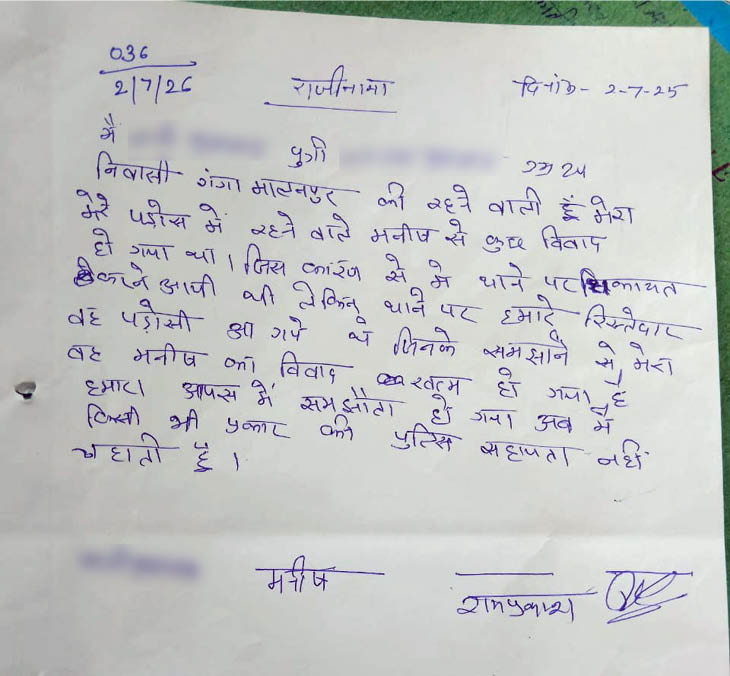 036
2/7/26
राजीनामा
दिनांक - 2-7-25
मैं पुत्री उम्र 24
निवासी गंगा मालनपुर की रहने वाली हूँ मेरा
मेरे पड़ोस में रहने वाले मनीष से कुछ विवाद
हो गया था। जिस कारण से मे थाने पर शिकायत
करने आयी थी लेकिन थाने पर हमारे रिस्तेदार
वह पड़ोसी आ गये थे जिनके समझाने से मेरा
वह मनीष का विवाद खत्म हो गया है
हमारा आपस में समझौता हो गया अब में
किसी भी प्रकार की पुलिस सहायता नहीं
चहाती हूँ।
मनीष
रामप्रकाश